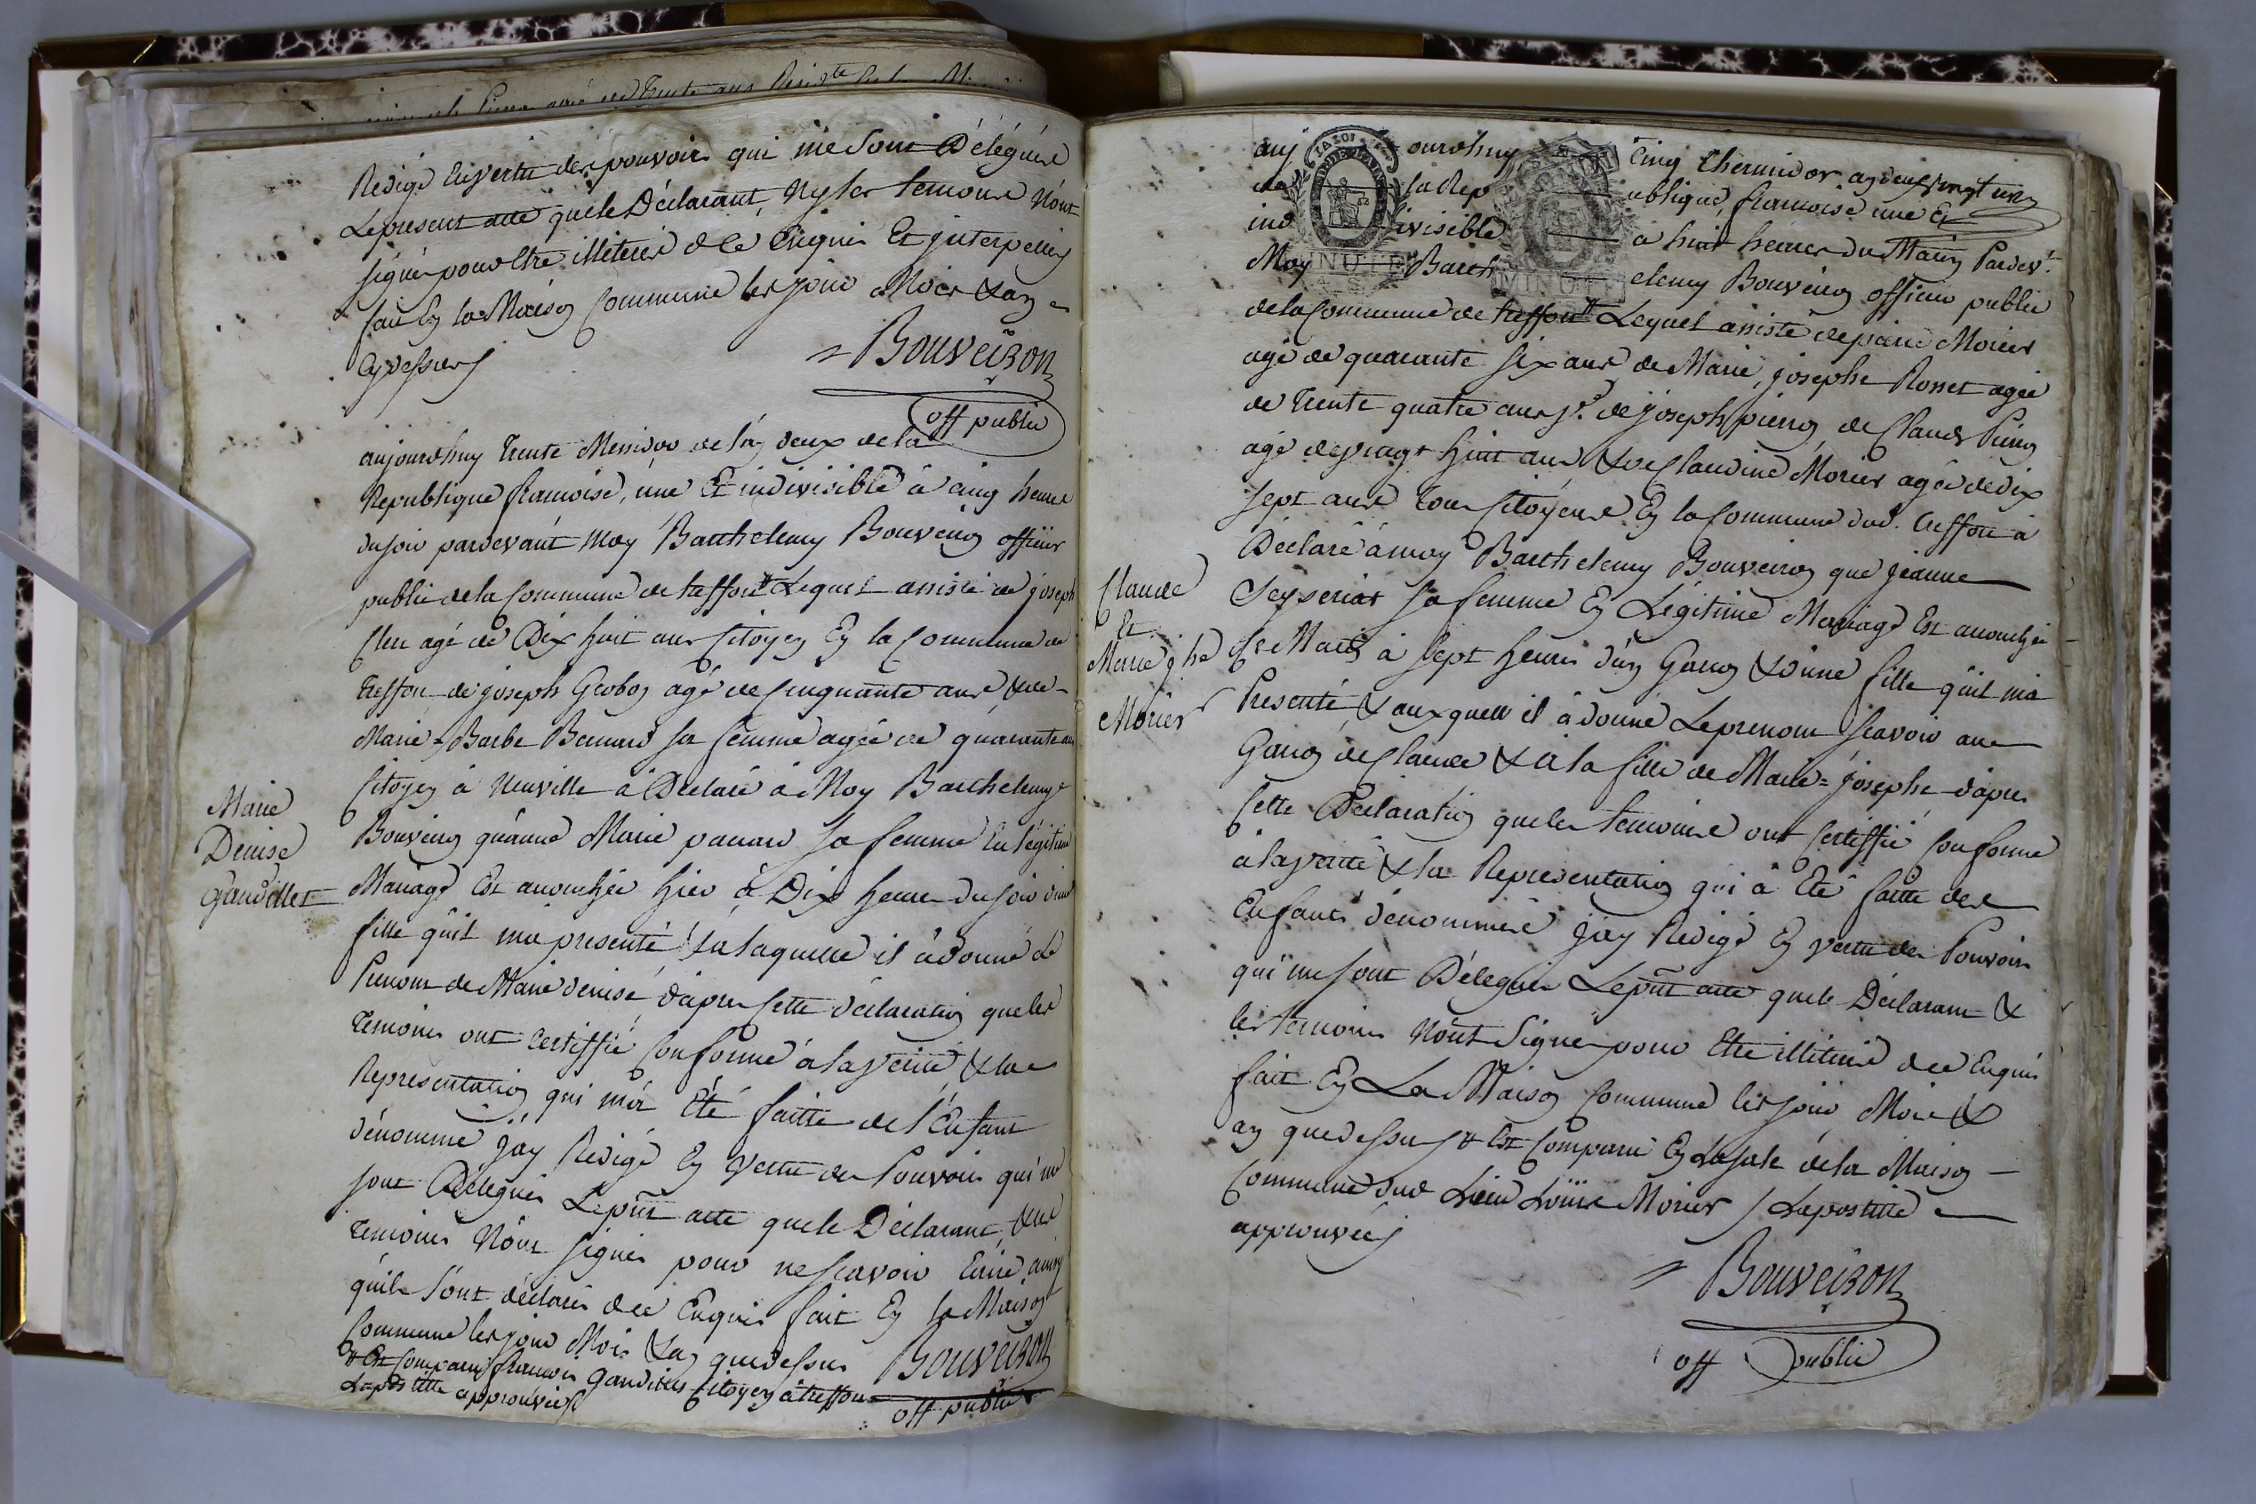 Redigé En vertu des pouvoirs qui me Sont Délégués
Le present acte que le Déclarant, Ny les temoins N'ont
signés pour Etre illiterés de ce Enquis Et interpellés
fait En la Maison Commune les jour Mois & an
Cy dessus
Bouveiron
off public
aujourdhuy trente Messidor de l'an deux de la
Republique francoise, une Et indivisible à cinq heures
du soir pardevant Moy Barthelemy Bouveiron officier
public de la Commune de treffort Lequel assisté de joseph
agé de Dix huit ans Citoyen En la Commune de
treffort de joseph Grobon agé de Cinquante ans & de
Marie-Barbe Bernard sa femme agée de quarante ans
Citoyen à Neuville à Déclaré à Moy Barthelemy
Bouveiron qu'anne Marie panard sa femme En légitime
Mariage Est accouchée hier à Dix heures du soir d'une
fille qu'il ma presenté & a laquelle il à donné Le
Prenom de Marie denise, d'apres Cette déclaration que les
temoins ont certiffié Conforme à la verité & la
Representation qui m'a Eté faitte de l'Enfant
dénommé jay Redigé En vertu des Pouvoirs qui me
sont Délegués Le pnt acte que le Déclarant, & les
temoins N'ont signés pour ne scavoir Ecrire, ainsy
qu'ils s'ont déclarés de ce Enquis fait En la Maison
Commune les jour Mois & an que dessus
& Est Comparu francois Gandillet Citoyen à treffort
La postille approuvée
Bouveiron
off public
Marie
Denise
Gandillet
aujourdhuy cinq thermidor an deuxieme
de la Republique francoise une Et
indivisible à huit heures du Matin Pardevt.
Moy Barthelemy Bouveiron officier public
de la Commune de treffort Lequel assisté de pierre Morier
agé de quarante six ans de Marie, josephe Rosset agée
de trente quatre ans de joseph pierron de Claude Pierron
agé de vingt huit ans & de Claudine Morier agée de dix
sept ans tous Citoyens En la Commune dud. treffort à
Déclaré à moy Barthelemy Bouveiron que jeanne
Seyseriat sa femme En Légitime Mariage Est accouchée
Ce Matin à sept heures d'un Garcon & d'une fille qu'il m'a
Presenté, & auxquels il à donné Le prenom scavoir au
Garcon de Claude & à la fille de Marie=josephe d'apres
Cette Déclaration que les temoins ont Certiffié Conforme
à la verité & la Representation qui à Eté faitte des
Enfants dénommés jay Redigé En vertu des Pouvoirs
qui me sont Délegués Le pnt acte que le Déclarant &
les temoins N'ont Signés pour Etre illiterés de ce Enquis
fait En La Maison Commune les jour, Mois &
an que dessus & Est Comparu En La sale de la Maison
Commune dud Lieu Louis Morier / La postille
approuvée
Bouveiron
off public
Claude
Et
Marie jhe
Morier
MINUTE